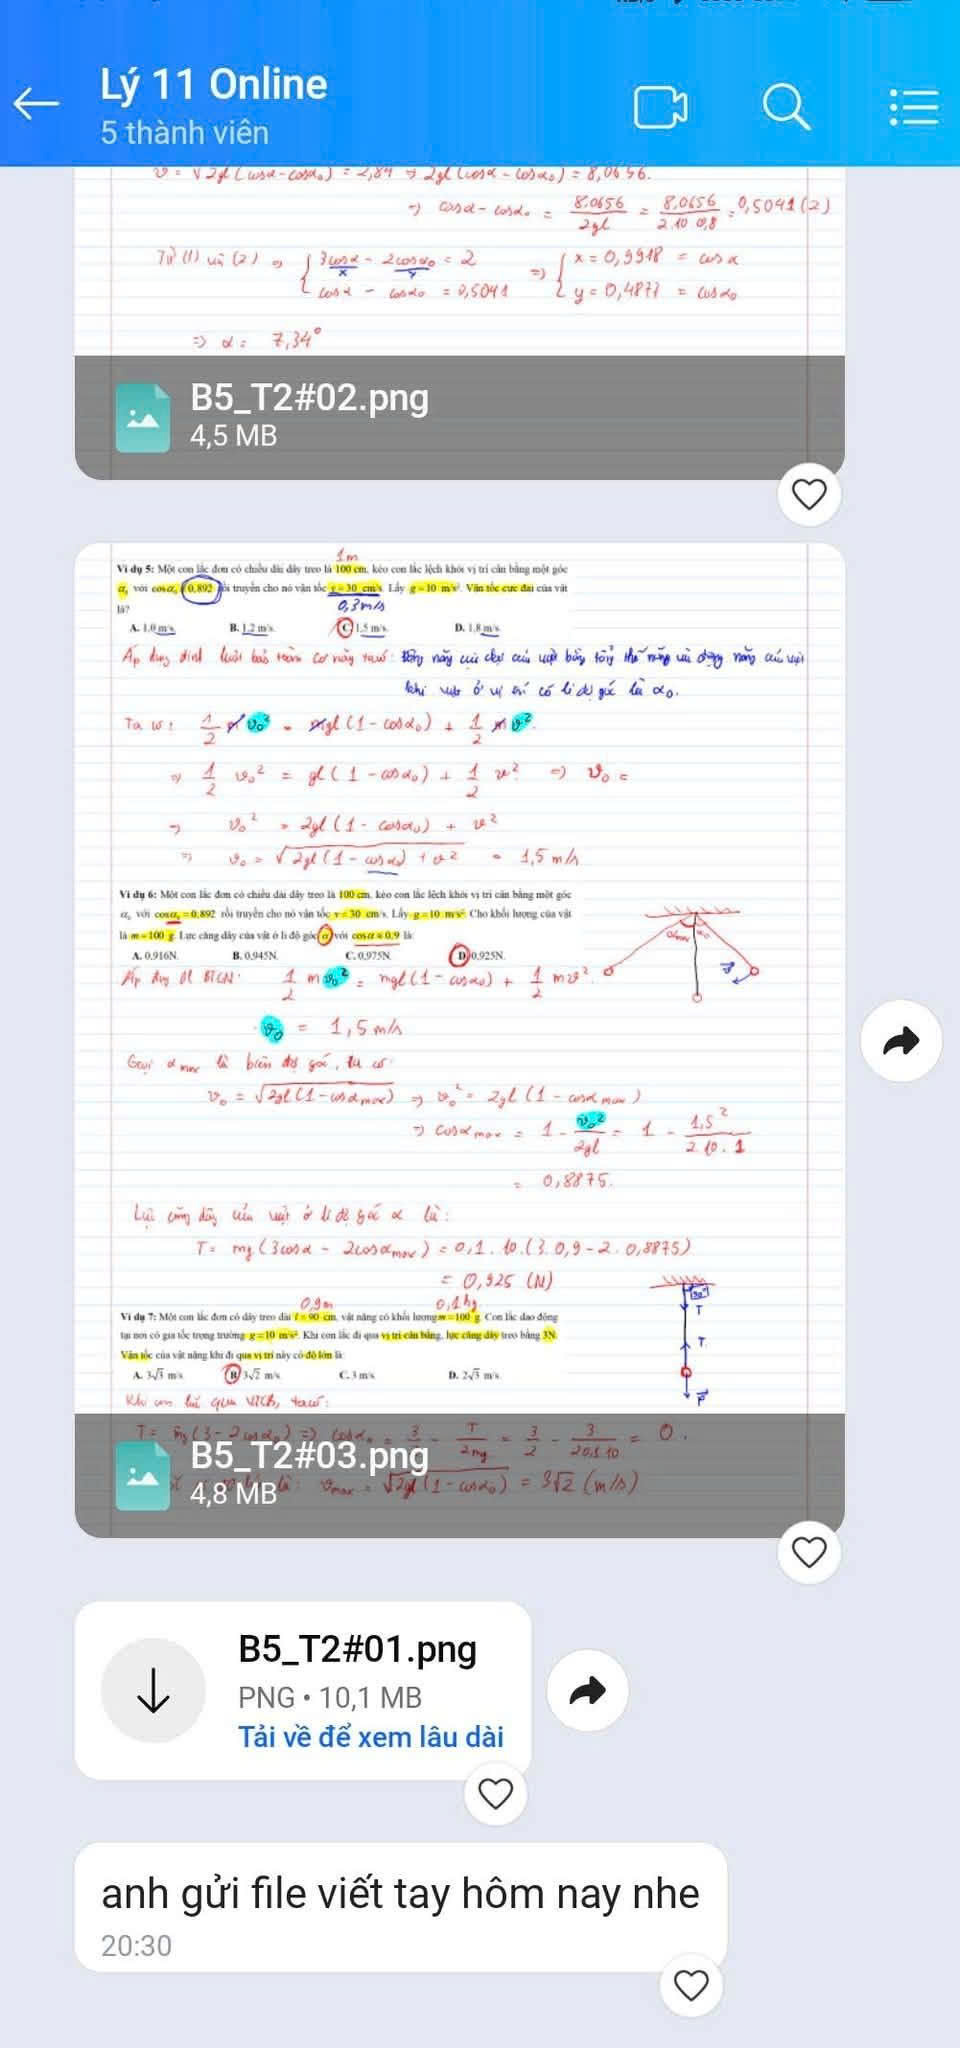 Lý 11 Online
5 thành viên
v = √2gl(cosα - cosα₀) = 2,84 => 2gl(cosα - cosα₀) = 8,0656.
=> cosα - cosα₀ = 8,0656/2gl = 8,0656/2.10.0,8 = 0,5041 (2)
Từ (1) và (2) => { 3cosα - 2cosα₀ = 2 => { x = 0,9918 = cosα
x y
cosα - cosα₀ = 0,5041 y = 0,4877 = cosα₀
=> α = 7,34°
B5_T2#02.png
4,5 MB
1m
Ví dụ 5: Một con lắc đơn có chiều dài dây treo là 100 cm, kéo con lắc lệch khỏi vị trí cân bằng một góc
α₀ với cosα₀ = 0,892 rồi truyền cho nó vận tốc v = 30 cm/s. Lấy g = 10 m/s². Vận tốc cực đại của vật
là?
0,3m/s
A. 1,0 m/s. B. 1,2 m/s. C. 1,5 m/s. D. 1,8 m/s.
Áp dụng định luật bảo toàn cơ năng ta có: động năng cực đại của vật bằng tổng thế năng và động năng của vật
khi vật ở vị trí có li độ góc là α₀.
Ta có: 1/2 m v₀² = mgl(1 - cosα₀) + 1/2 m v².
=> 1/2 v₀² = gl(1 - cosα₀) + 1/2 v² => v₀ =
=> v₀² = 2gl(1 - cosα₀) + v²
=> v₀ = √2gl(1 - cosα₀) + v² = 1,5 m/s
Ví dụ 6: Một con lắc đơn có chiều dài dây treo là 100 cm, kéo con lắc lệch khỏi vị trí cân bằng một góc
α₀ với cosα₀ = 0,892 rồi truyền cho nó vận tốc v = 30 cm/s. Lấy g = 10 m/s². Cho khối lượng của vật
là m = 100 g. Lực căng dây của vật ở li độ góc α với cosα = 0,9 là:
A. 0,916N. B. 0,945N. C. 0,975N. D. 0,925N.
αmax α₀
v
Áp dụng ĐL BTCN: 1/2 m v₀² = mgl(1 - cosα₀) + 1/2 mv².
v₀ = 1,5 m/s
Gọi αmax là biên độ góc, ta có:
v₀ = √2gl(1 - cosαmax) => v₀² = 2gl(1 - cosαmax)
=> cosαmax = 1 - v₀²/2gl = 1 - 1,5²/2.10.1
= 0,8875.
Lực căng dây của vật ở li độ góc α là:
T = mg(3cosα - 2cosαmax) = 0,1.10.(3.0,9 - 2.0,8875)
= 0,925 (N)
0,9m 0,1kg
Ví dụ 7: Một con lắc đơn có dây treo dài l = 90 cm, vật nặng có khối lượng m = 100 g. Con lắc dao động
tại nơi có gia tốc trọng trường g = 10 m/s². Khi con lắc đi qua vị trí cân bằng, lực căng dây treo bằng 3N.
Vận tốc của vật nặng khi đi qua vị trí này có độ lớn là
A. 3√3 m/s. B. 3√2 m/s. C. 3 m/s. D. 2√3 m/s.
90°
T
T
P
Khi con lắc qua VTCB, ta có:
T = mg(3 - 2cosα₀) => cosα₀ = 3/2 - T/2mg = 3/2 - 3/2.0,1.10 = 0.
là: vmax = √2gl(1 - cosα₀) = 3√2 (m/s)
B5_T2#03.png
4,8 MB
B5_T2#01.png
PNG • 10,1 MB
Tải về để xem lâu dài
anh gửi file viết tay hôm nay nhe
20:30